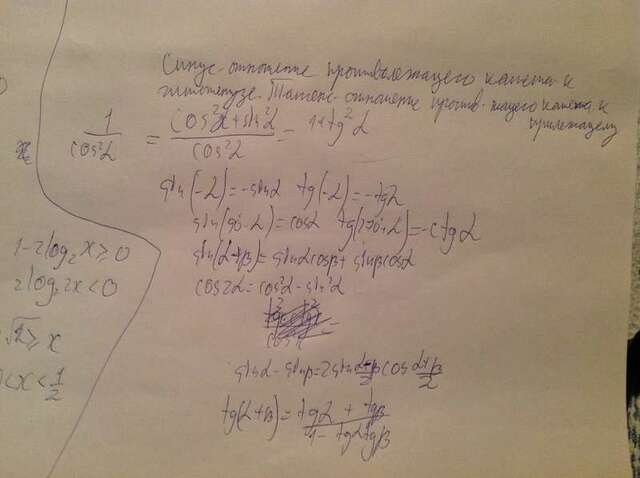 Синус-отношение противолежащего катета к
гипотенузе. Тангенс-отношение против-лежащего катета к
прилежащему
1/cos²α = (cos²α + sin²α)/cos²α = 1+tg²α
sin(-α) = -sinα tg(-α) = -tgα
sin(90-α) = cosα tg(270+α) = -ctgα
sin(α+β) = sinα cosβ + sinβ cosα
cos2α = cos²α - sin²α
sinα - sinβ = 2sin (α-β)/2 cos (α+β)/2
tg(α+β) = (tgα + tgβ)/(1 - tgα tgβ)
1-2log₂x ≥ 0
2log₂2x < 0
≥ x
< x < 1/2